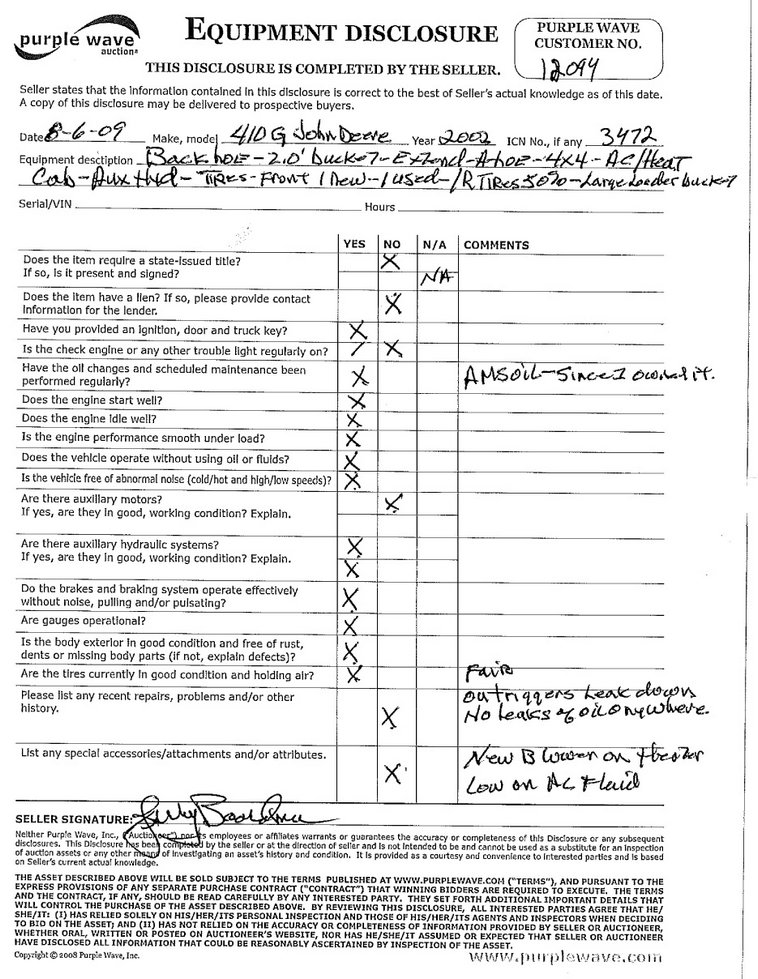 purple wave
auction®
EQUIPMENT DISCLOSURE
THIS DISCLOSURE IS COMPLETED BY THE SELLER.
PURPLE WAVE
CUSTOMER NO.
12094
Seller states that the information contained in this disclosure is correct to the best of Seller's actual knowledge as of this date.
A copy of this disclosure may be delivered to prospective buyers.
Date 8-6-09 Make, model 410G John Deere Year 2002 ICN No., if any 3472
Equipment desctiption Back hoE-2.0' bucket-Extend-A-hoE-4x4-AC/HEAT
Cab-Aux Hyd-TIRES-Front 1 new-1 used-/R TIRES 50%-Large Loader bucket
Serial/VIN Hours
YES NO N/A COMMENTS
Does the item require a state-issued title? X
If so, is it present and signed? NA
Does the item have a lien? If so, please provide contact
information for the lender. X
Have you provided an ignition, door and truck key? X
Is the check engine or any other trouble light regularly on? / X
Have the oil changes and scheduled maintenance been
performed regularly? X AMSOIL-Since I owned it.
Does the engine start well? X
Does the engine idle well? X
Is the engine performance smooth under load? X
Does the vehicle operate without using oil or fluids? X
Is the vehicle free of abnormal noise (cold/hot and high/low speeds)? X
Are there auxiliary motors? X
If yes, are they in good, working condition? Explain.
Are there auxiliary hydraulic systems? X
If yes, are they in good, working condition? Explain. X
Do the brakes and braking system operate effectively
without noise, pulling and/or pulsating? X
Are gauges operational? X
Is the body exterior in good condition and free of rust,
dents or missing body parts (if not, explain defects)? X
Are the tires currently in good condition and holding air? X Fair
Please list any recent repairs, problems and/or other outriggers Leak down
history. X No Leaks of oil anywhere.
List any special accessories/attachments and/or attributes. New Blower on Heater
X Low on AC Fluid
SELLER SIGNATURE:
Neither Purple Wave, Inc., ("Auctioneer") nor its employees or affiliates warrants or guarantees the accuracy or completeness of this Disclosure or any subsequent
disclosures. This Disclosure has been completed by the seller or at the direction of seller and is not intended to be and cannot be used as a substitute for an inspection
of auction assets or any other means of investigating an asset's history and condition. It is provided as a courtesy and convenience to interested parties and is based
on Seller's current actual knowledge.
THE ASSET DESCRIBED ABOVE WILL BE SOLD SUBJECT TO THE TERMS PUBLISHED AT WWW.PURPLEWAVE.COM ("TERMS"), AND PURSUANT TO THE
EXPRESS PROVISIONS OF ANY SEPARATE PURCHASE CONTRACT ("CONTRACT") THAT WINNING BIDDERS ARE REQUIRED TO EXECUTE. THE TERMS
AND THE CONTRACT, IF ANY, SHOULD BE READ CAREFULLY BY ANY INTERESTED PARTY. THEY SET FORTH ADDITIONAL IMPORTANT DETAILS THAT
WILL CONTROL THE PURCHASE OF THE ASSET DESCRIBED ABOVE. BY REVIEWING THIS DISCLOSURE, ALL INTERESTED PARTIES AGREE THAT HE/
SHE/IT: (I) HAS RELIED SOLELY ON HIS/HER/ITS PERSONAL INSPECTION AND THOSE OF HIS/HER/ITS AGENTS AND INSPECTORS WHEN DECIDING
TO BID ON THE ASSET; AND (II) HAS NOT RELIED ON THE ACCURACY OR COMPLETENESS OF INFORMATION PROVIDED BY SELLER OR AUCTIONEER,
WHETHER ORAL, WRITTEN OR POSTED ON AUCTIONEER'S WEBSITE, NOR HAS HE/SHE/IT ASSUMED OR EXPECTED THAT SELLER OR AUCTIONEER
HAVE DISCLOSED ALL INFORMATION THAT COULD BE REASONABLY ASCERTAINED BY INSPECTION OF THE ASSET.
Copyright © 2008 Purple Wave, Inc.
www.purplewave.com